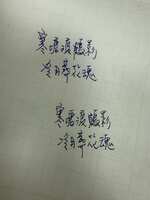 寒塘渡鹤影
冷月葬花魂
寒塘渡鹤影
冷月葬花魂